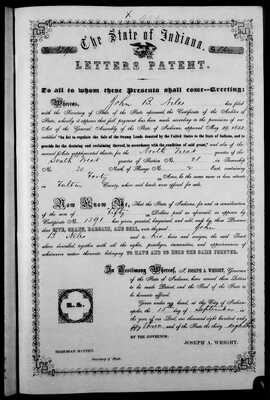 The State of Indiana.
LETTERS PATENT.
To all to whom these Presents shall come—Greeting:
Whereas, John B. Niles has filed
with the Secretary of State of the State aforesaid, the Certificate of the Auditor of
State, whereby it appears that full payment has been made according to the provisions of
an Act of the General Assembly of the State of Indiana, approved May 29, 1852,
entitled "An Act to regulate the Sale of the Swamp Lands donated by the United States to the State of Indiana, and to
provide for the draining and reclaiming thereof, in accordance with the condition of said grant," and also of the
thereto, for the North West quarter of the
South West quarter of Section No. in Township
No. 30 North, of Range No. 2 East, containing
Forty Acres, be the same more or less, situate
in Fulton County, where said lands were offered for sale.
Now Know Ye, That the State of Indiana, for and in consideration
of the sum of Fifty Dollars paid as aforesaid, as appears by
Certificate No. 1391 has given, granted, bargained and sold, and by these Presents
does GIVE, GRANT, BARGAIN, AND SELL, unto the said John
B. Niles and to his heirs and assigns, the said Tract
above described, together with all the rights, privileges, immunities, and appurtenances of
whatsoever nature thereunto belonging TO HAVE AND TO HOLD THE SAME FOREVER.
In Testimony Whereof, I, JOSEPH A. WRIGHT, Governor
of the State of Indiana, have caused these Letters
to be made Patent, and the Seal of the State to
be hereunto affixed.
Given under my hand, at the City of Indianapolis,
the 15 day of September in
the year of our Lord, one thousand eight hundred and
fifty and of the State the thirty
BY THE GOVERNOR:
JOSEPH A. WRIGHT.
L.S.
Secretary of State.